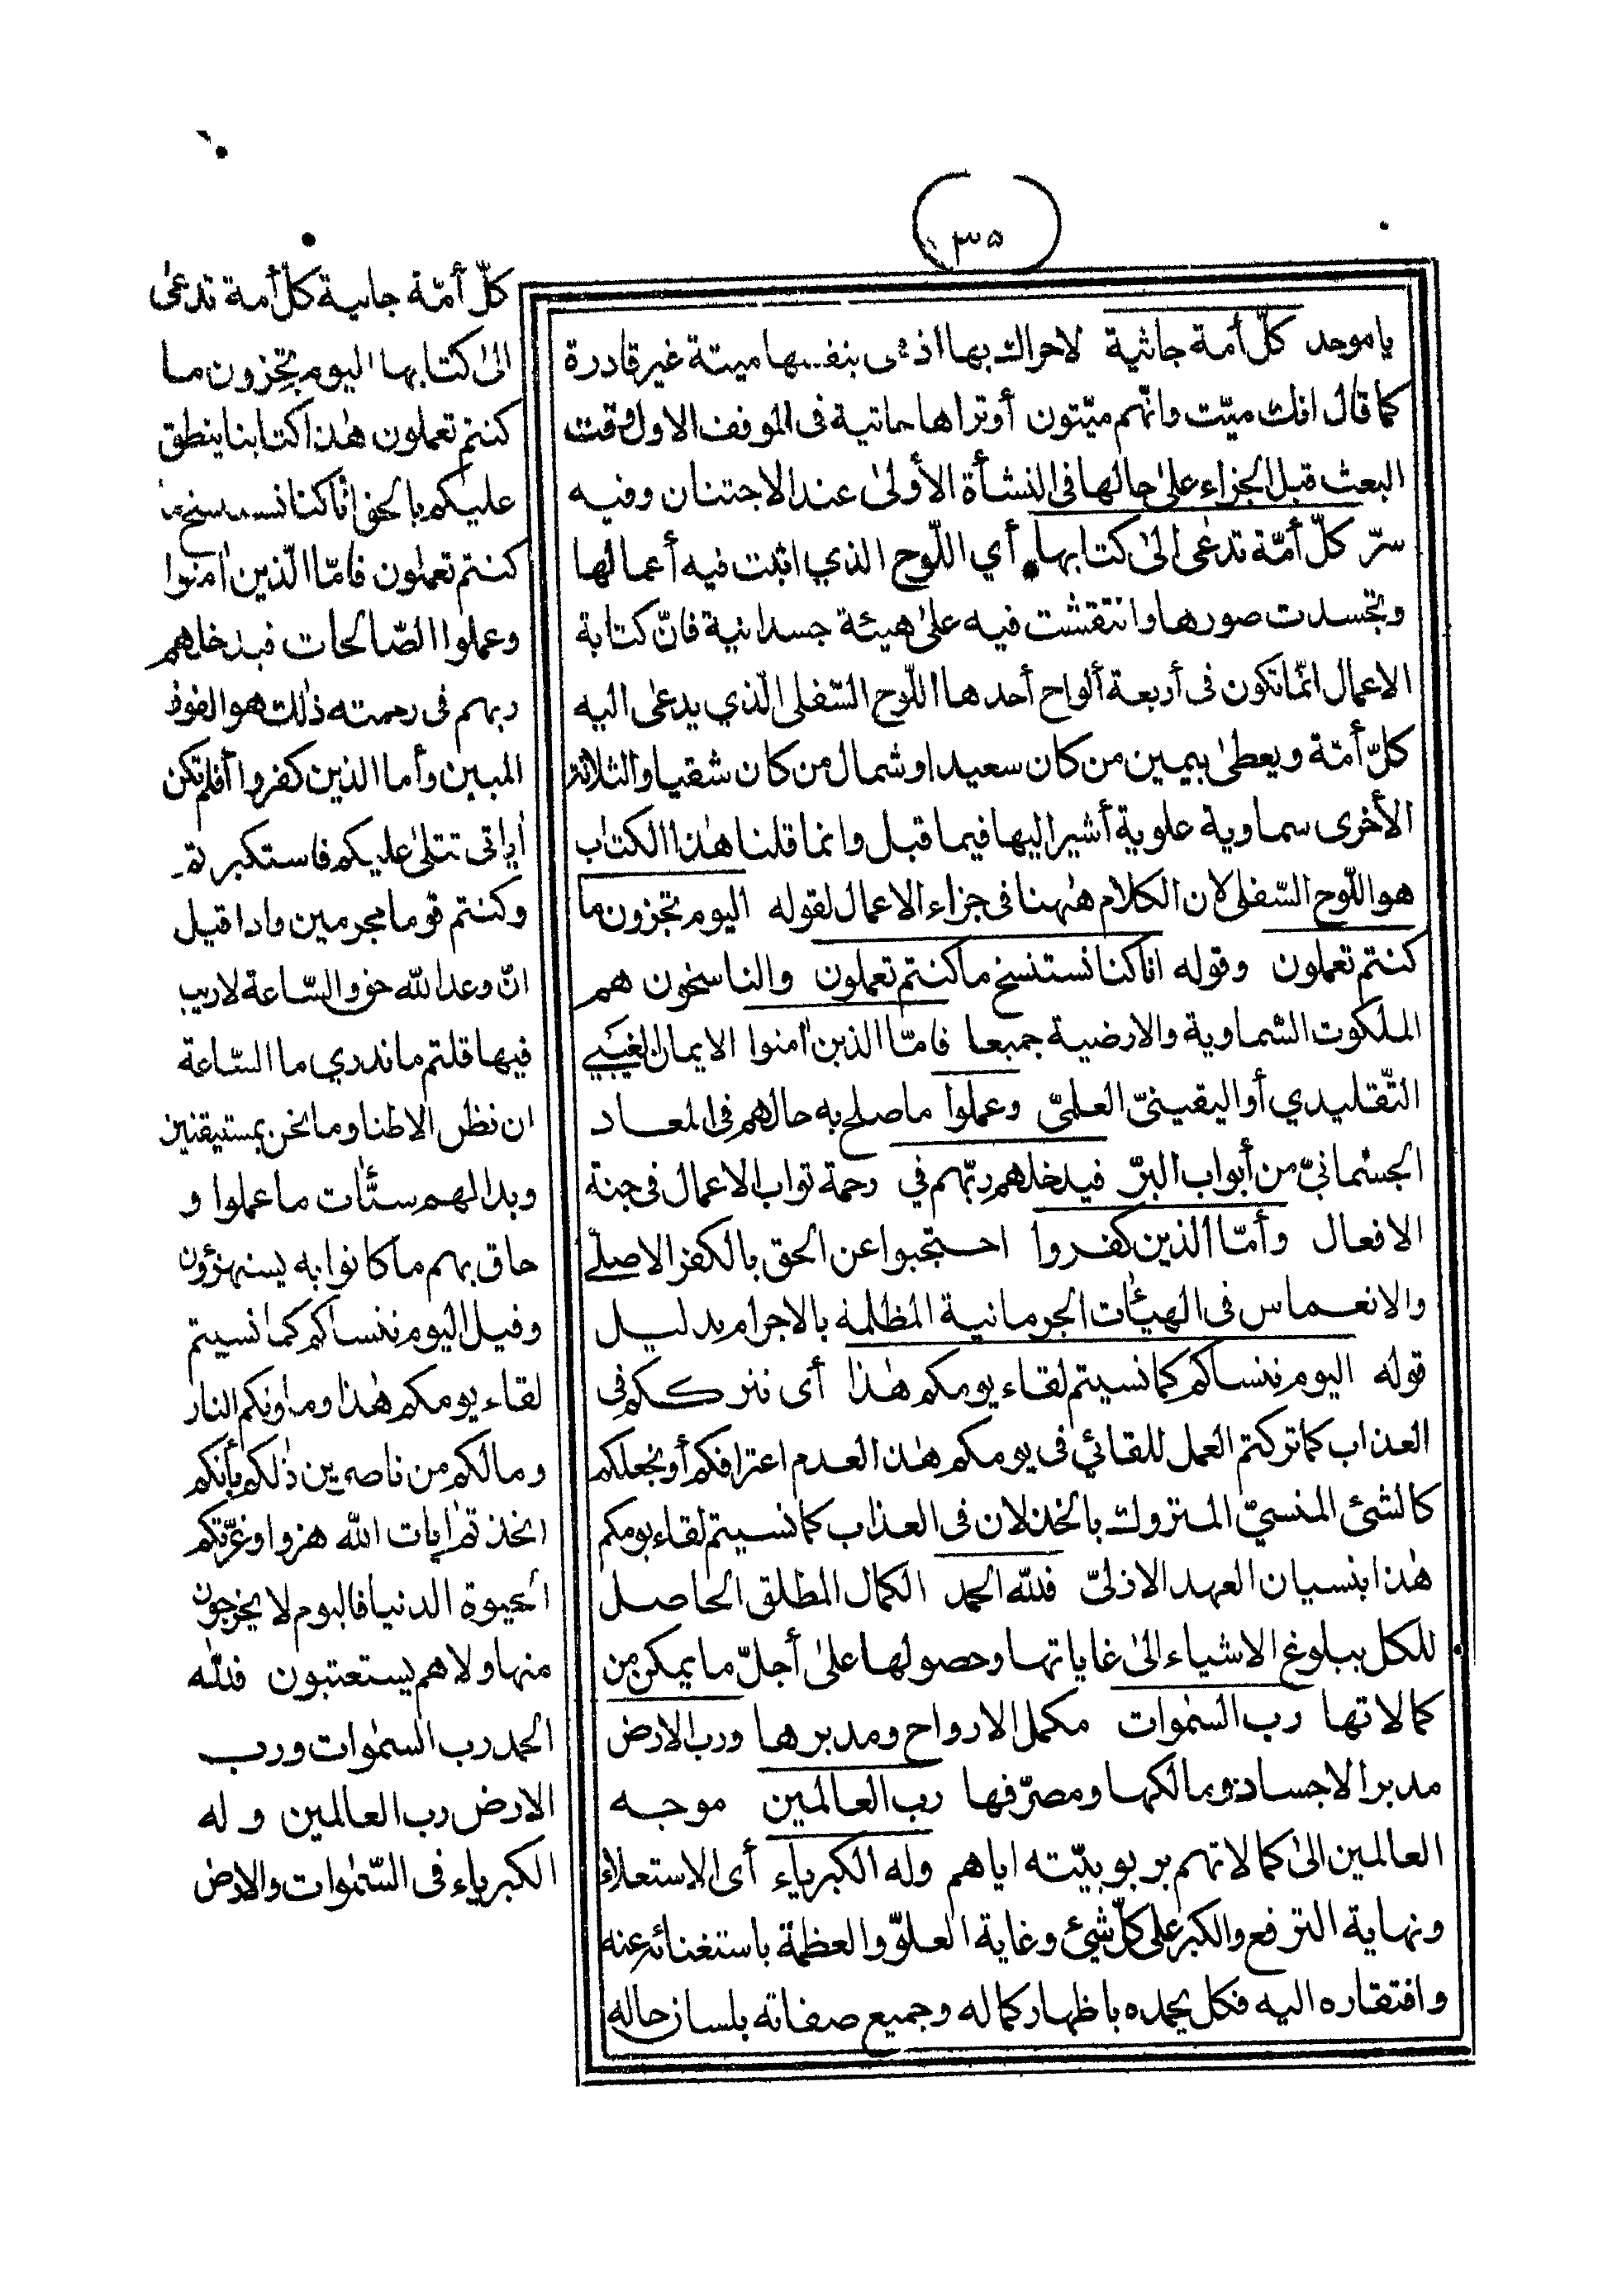 ٣٥
يا موحد كلّ أمة جاثية لا حراك بها اذ هى بنفسها ميتة غير قادرة
كما قال انك ميّت وانّهم ميّتون أو تراها جاثية فى الموقف الاول وقت
البعث قبل الجزاء على حالها فى النشأة الأولىٰ عند الاجتنان وفيه
سرّ كلّ أمّة تدعىٰ الىٰ كتابها أي اللّوح الذي اثبت فيه أعمالها
وتجسدت صورها وانتقشت فيه علىٰ هيئة جسدانية فانّ كتابة
الاعمال انّما تكون فى أربعة ألواح أحدها اللّوح السّفلى الّذي يدعىٰ اليه
كلّ أمّة ويعطىٰ بيمين من كان سعيدا وشمال من كان شقيا والثلاثة
الأخرى سماوية علوية أشير اليها فيما قبل وانما قلنا هٰذا الكتاب
هو اللّوح السّفلى لان الكلام هٰهنا فى جزاء الاعمال لقوله اليوم تجزون ما
كنتم تعملون وقوله انا كنا نستنسخ ما كنتم تعملون والناسخون هم
الملكوت السّماوية والارضية جميعا فامّا الذين اٰمنوا الايمان الغيبي
التّقليدي أو اليقينىّ العلمىّ وعملوا ما صلح به حالهم فى المعاد
الجسمانىّ من أبواب البرّ فيدخلهم ربّهم في رحمة ثواب الاعمال فى جنة
الافعال وأمّا الذين كفروا احتجبوا عن الحق بالكفر الاصلىّ
والانغماس فى الهيئات الجرمانية المظلمة بالاجرام بدليل
قوله اليوم ننساكم كما نسيتم لقاء يومكم هٰذا أى نتركـكم فى
العذاب كما تركتم العمل للقائي فى يومكم هٰذا لعدم اعترافكم أو نجعلكم
كالشئ المنسيّ المتروك بالخذلان فى العذاب كما نسيتم لقاء يومكم
هٰذا بنسيان العهد الازلىّ فللّه الحمد الكمال المطلق الحاصل
للكل ببلوغ الاشياء الىٰ غاياتها وحصولها علىٰ أجلّ ما يمكن من
كمالاتها رب السمٰوات مكمل الارواح ومدبرها ورب الارض
مدبر الاجساد ومالكها ومصرّفها رب العالمين موجه
العالمين الىٰ كمالاتهم بربوبيّته اياهم وله الكبرياء أى الاستعلاء
ونهاية الترفع والكبر على كلّ شيئ وغاية العلوّ والعظمة باستغنائه عنه
وافتقاره اليه فكل يحمده باظهار كماله وجميع صفاته بلسان حاله
كلّ أمّة جاثية كلّ أمة تدعىٰ
الىٰ كتابها اليوم تجزون ما
كنتم تعملون هٰذا كتابنا ينطق
عليكم بالحق انّا كنا نستنسخ ما
كنتم تعملون فامّا الّذين اٰمنوا
وعملوا الصّالحات فيدخلهم
ربهم فى رحمته ذٰلك هو الفوز
المبين وأما الذين كفروا أفلم تكن
اٰياتى تتلىٰ عليكم فاستكبرتم
وكنتم قوما مجرمين واذا قيل
انّ وعد الله حق والسّاعة لا ريب
فيها قلتم ما ندري ما السّاعة
ان نظن الا ظنا وما نحن بمستيقنين
وبدا لهم سيّئات ما عملوا و
حاق بهم ما كانوا به يستهزؤن
وقيل اليوم ننساكم كما نسيتم
لقاء يومكم هٰذا وماوٰيكم النار
وما لكم من ناصرين ذٰلكم بأنكم
اتخذتم اٰيات الله هزوا وغرّتكم
الحيوة الدنيا فاليوم لا يخرجون
منها ولا هم يستعتبون فللّه
الحمد رب السمٰوات ورب
الارض رب العالمين وله
الكبرياء فى السّمٰوات والارض